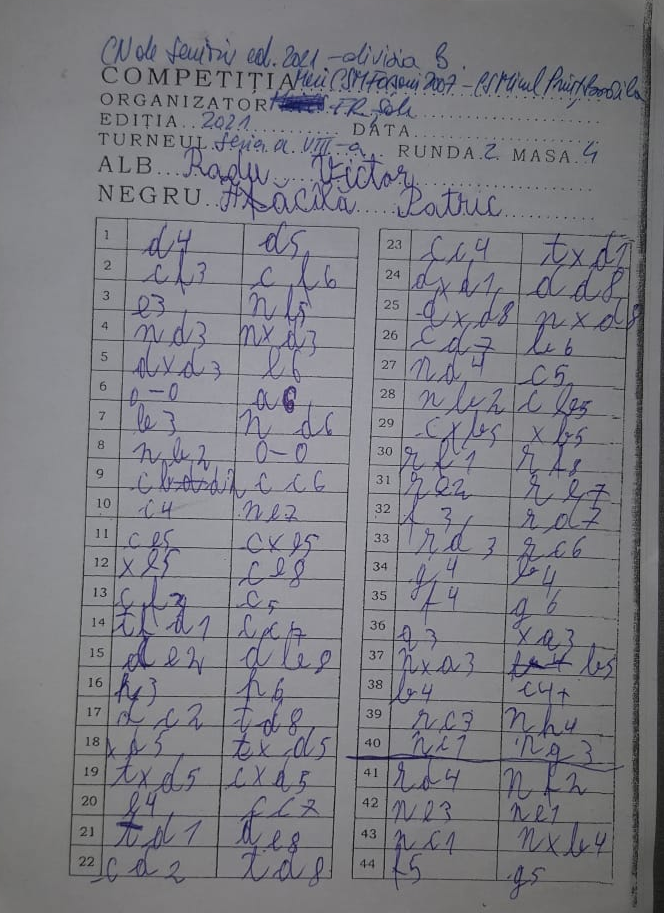 CN de Seniori ed. 2021 - divizia B.
COMPETIȚIA
ORGANIZATOR FR Șah
EDIȚIA 2021 DATA
TURNEUL Seria a VIII-a RUNDA 2 MASA 4
ALB Radu Victor
NEGRU Patric
1 d4 d5
2 cf3 cf6
3 e3 nf5
4 nd3 nxd3
5 dxd3 e6
6 0-0 a6
7 b3 nd6
8 nb2 0-0
9 cbd2 cc6
10 c4 ne7
11 ce5 cxe5
12 xe5 ce8
13 cf3 c5
14 tfd1 cc7
15 de2 de8
16 h3 h6
17 dc2 td8
18 xd5 txd5
19 txd5 cxd5
20 e4 cc7
21 td1 de8
22 cd2 td8
23 cc4 txd1
24 dxd1 dd8
25 dxd8 nxd8
26 cd7 b6
27 nd4 c5
28 nb2 cb5
29 cxb5 xb5
30 rf1 rf8
31 re2 re7
32 f3 rd7
33 rd3 rc6
34 g4 b4
35 f4 g6
36 a3 xa3
37 nxa3 b5
38 b4 c4+
39 rc7 nh4
40 nc1 ng3
41 rd4 nf2
42 ne3 ne1
43 nc1 nxb4
44 f5 g5